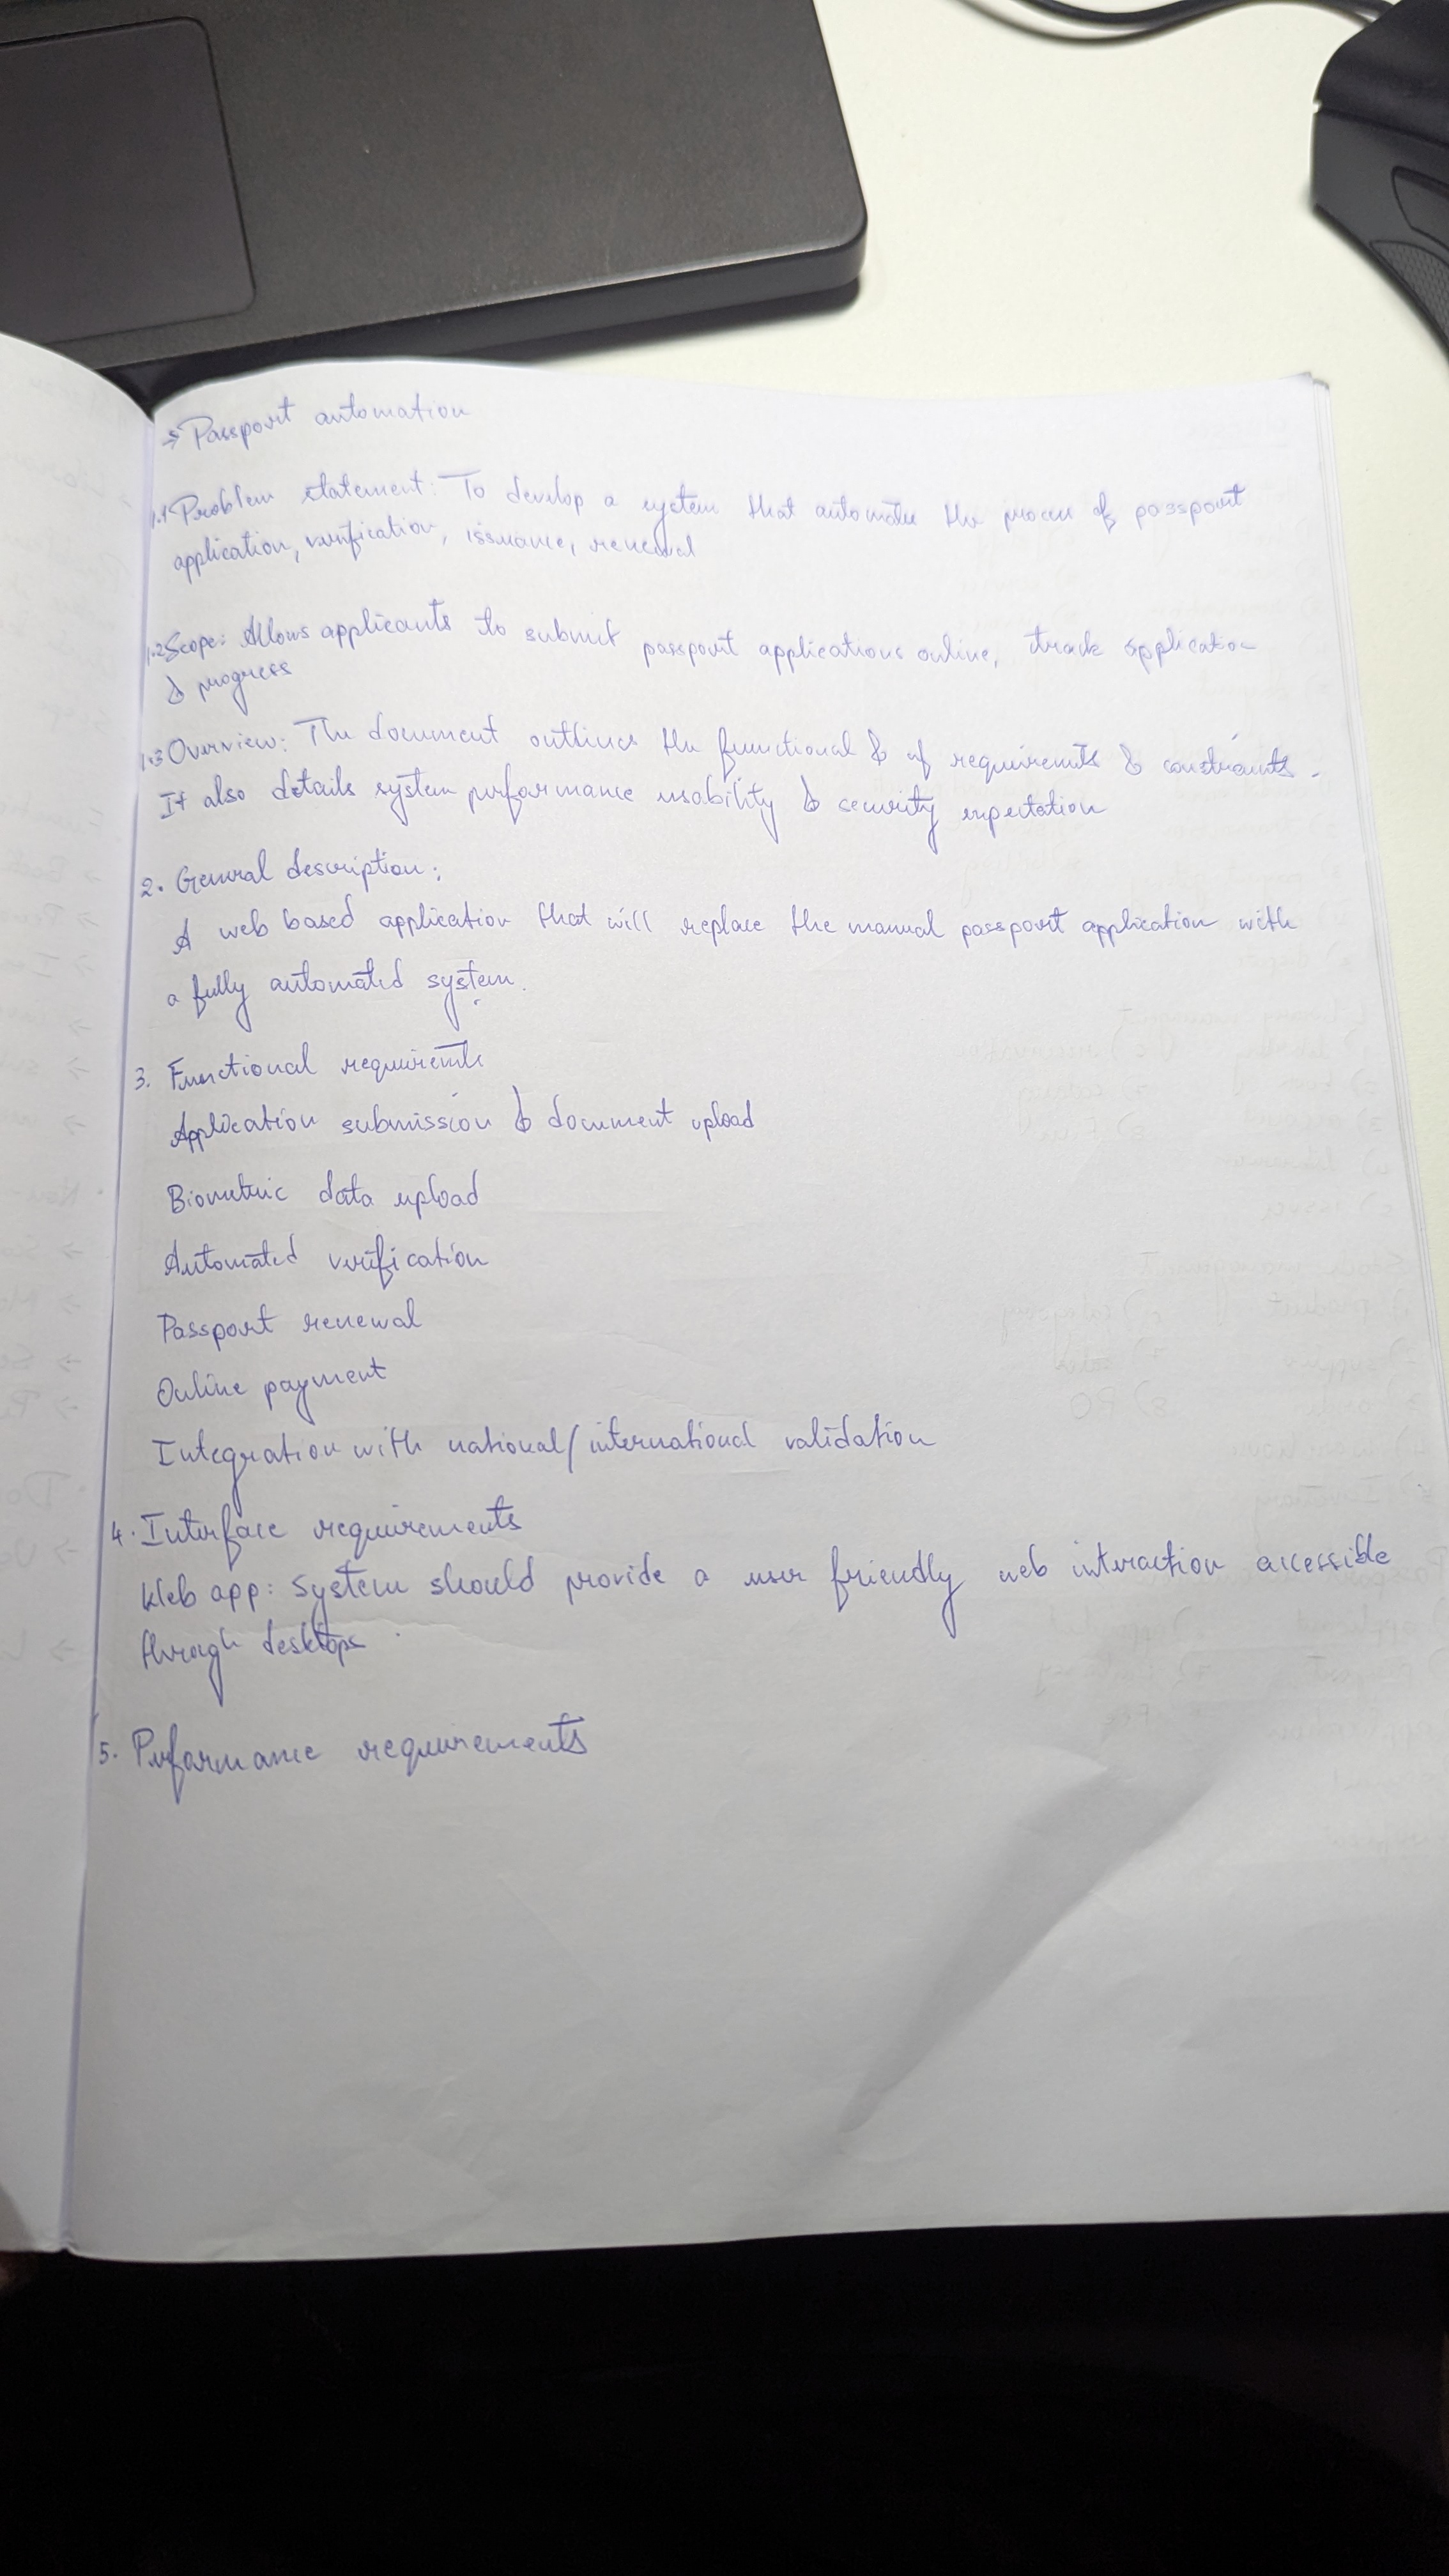 → Passport automation
1.1 Problem statement: To develop a system that automates the process of passport
application, verification, issuance, renewal
1.2 Scope: Allows applicants to submit passport applications online, track application
& progress
1.3 Overview: The document outlines the functional & nf requiremts & constraints.
It also details system performance usability & security expectation
2. General description:
A web based application that will replace the manual passport application with
a fully automated system.
3. Functional requiremts
Application submission & document upload
Biometric data upload
Automated verification
Passport renewal
Online payment
Integration with national/international validation
4. Interface requirements
Web app: System should provide a user friendly web interaction accessible
through desktops.
5. Performance requirements